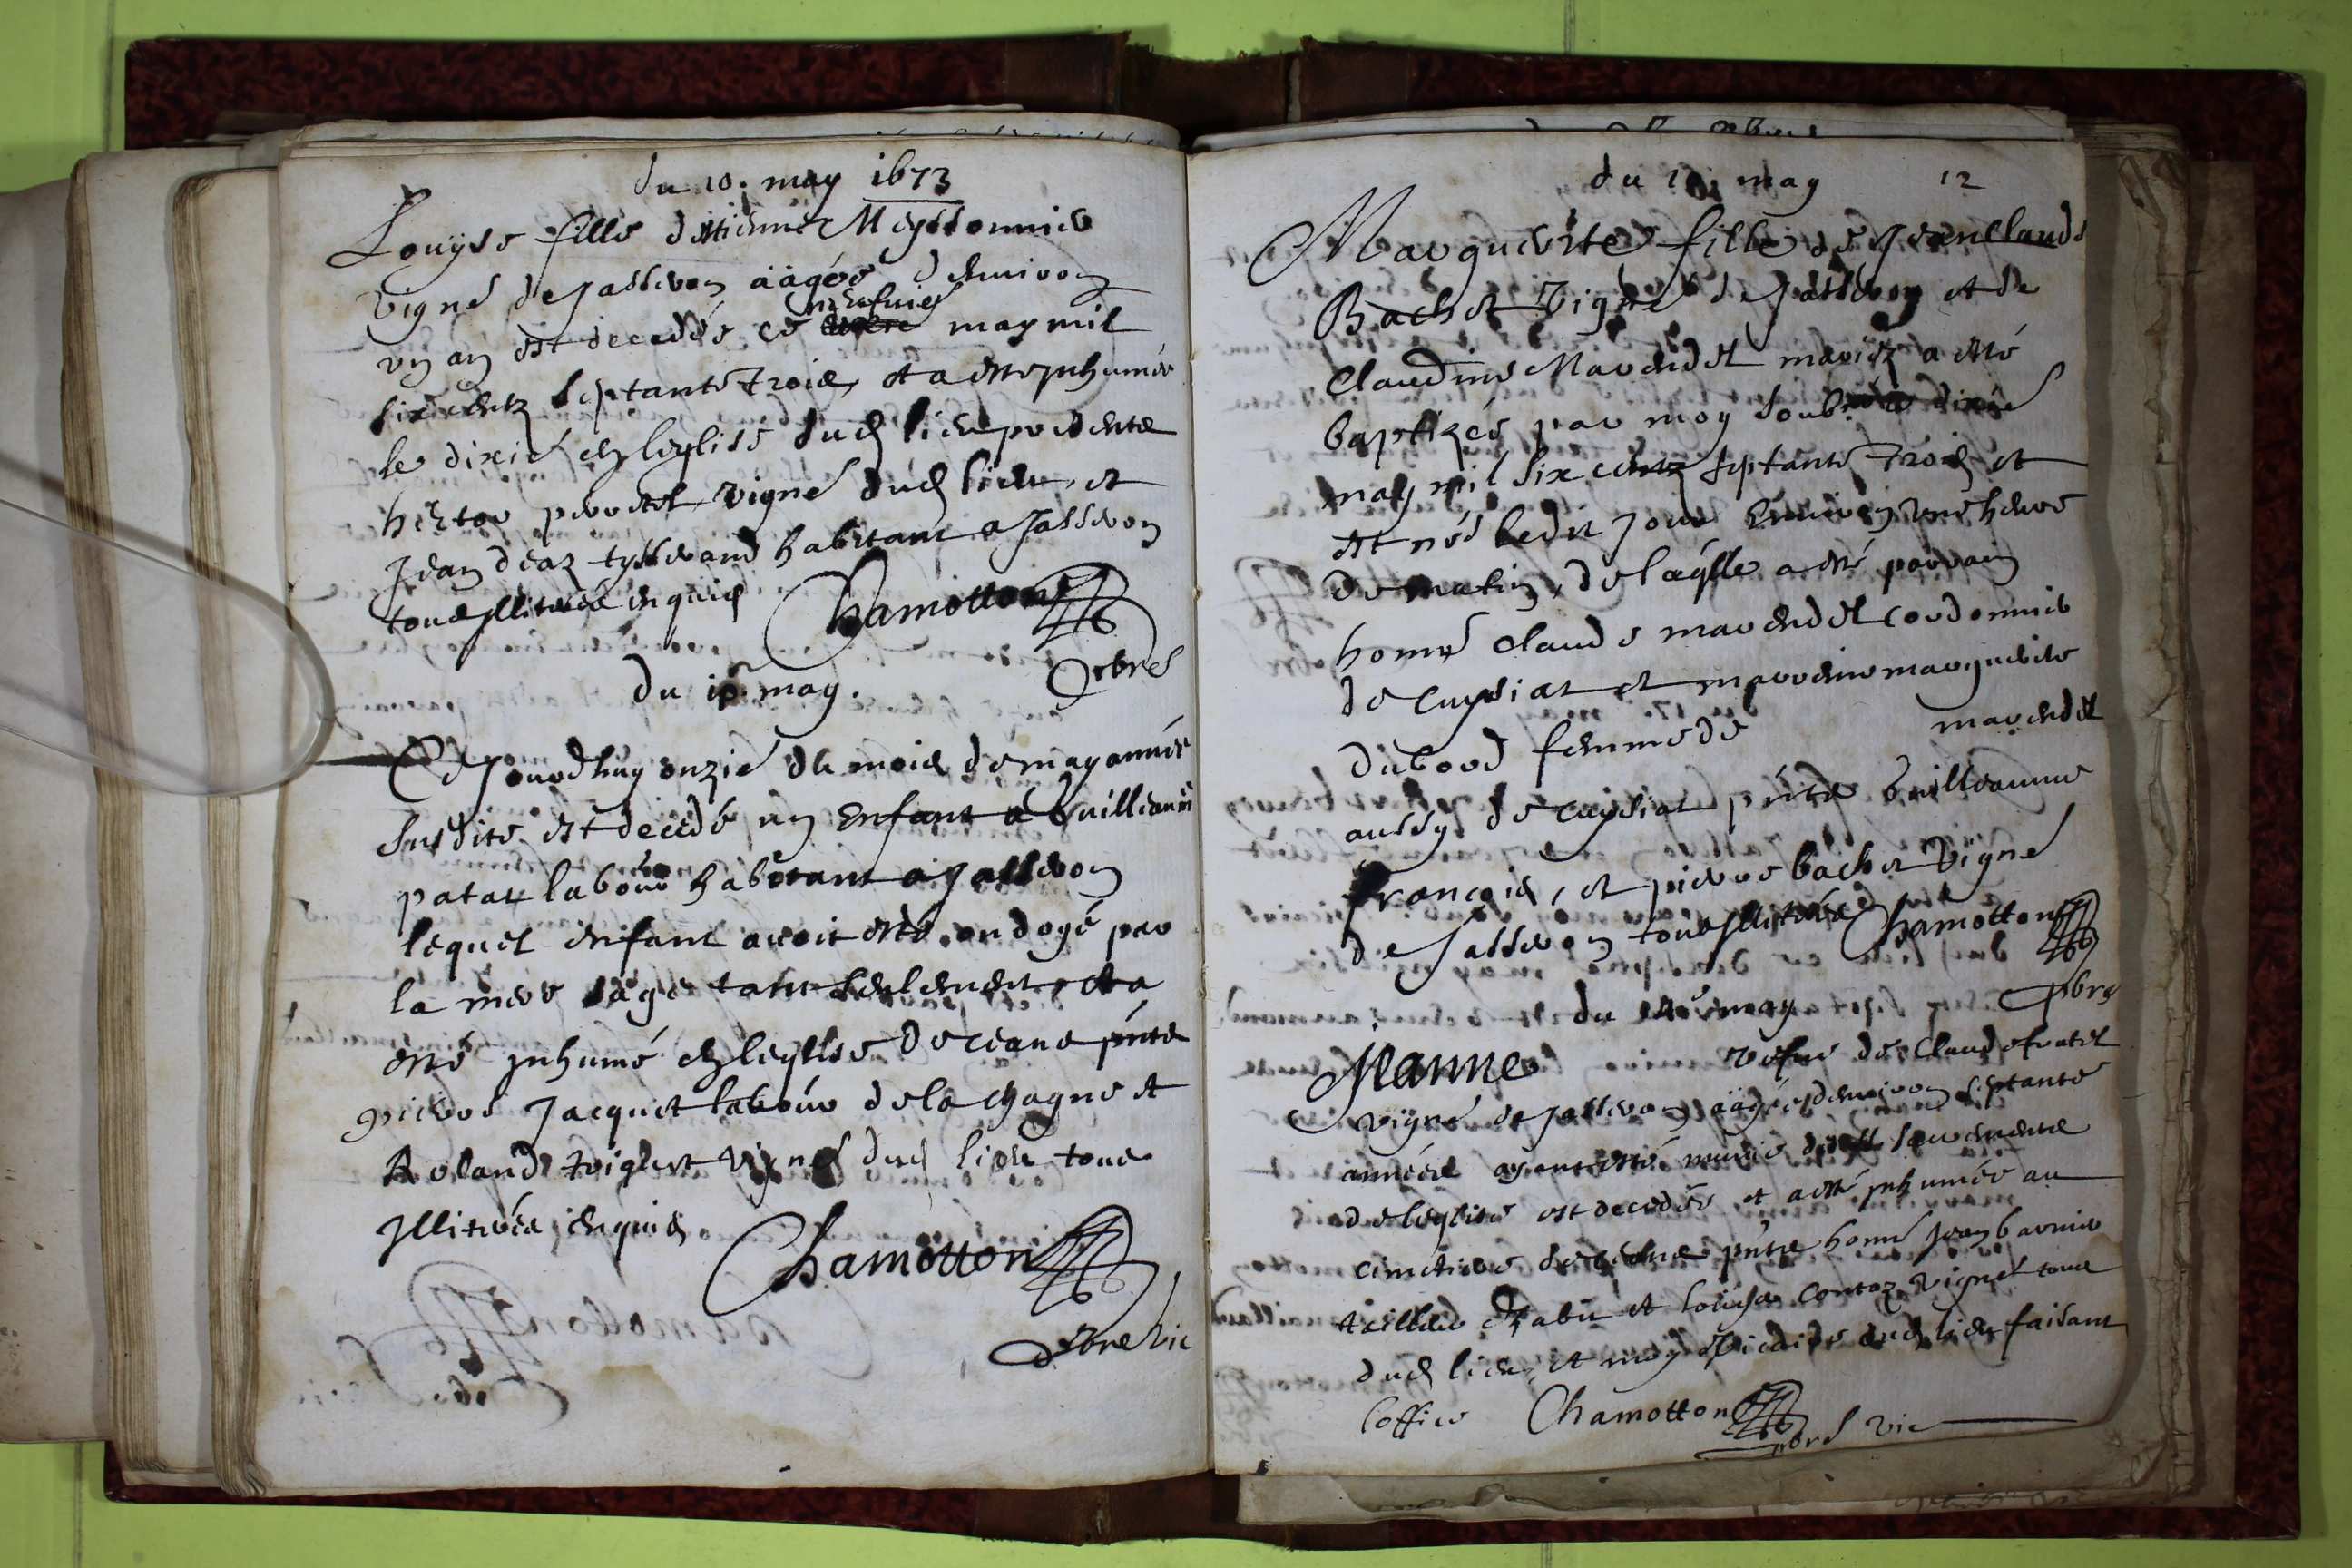 du 10. may 1673
Louyse fille d'Etienne Meyssonnier
vigne de Jasseron aagée d'environ
un an est decedée ce neufvie may mil
six centz septante trois, et a esté inhumée
le dixie en leglise dud lieu presents
hector perrodet vigne dud lieu, et
Jean deaz tysserand habitant a Jasseron
tous illiterés enquis Chamotton
pbre
du 11 may.
Ce Jourdhuy onzie du mois de may année
susdite est decedé un enfant a Guilleaume
patat labour habitant a Jasseron
lequel enfant avoit esté ondoyé par
la mere sage tant seulement, et a
esté inhumé en leglise de ceans pnts
pierre Jacquet labour de la chagne et
Roland vigne dud lieu tous
illiterés, enquis
Chamotton
pbre vic
du 10. may 12
Marguerite fille de Jean Claude
Bachet vigne de Jasseron et de
Claudine Marendet mariez a esté
baptizée par moy soub dixie
may mil six centz septante trois et
est née ledit jour environ une heure
de matin, de laqlle a esté parrain
home Claude marendet cordonnier
de Cuysiat et marreine marguerite
dubord femme de marendet
aussy de Cuysiat pnts Guilleaume
françois, et pierre bachet vigne
de Jasseron tous illiterés Chamotton
pbre
du may
Jeanne vefve de Claude fratet
vigne de Jasseron aagée denviron septante
années ayant esté munie des sacrements
de leglise est decedée et a esté inhumée au
cimetiere de ceans pnts home Jean barnier
tailleur dhabit et contoz vigne tous
dud lieu, et moy vicaire dud lieu faisant
loffice Chamotton
pbre vic